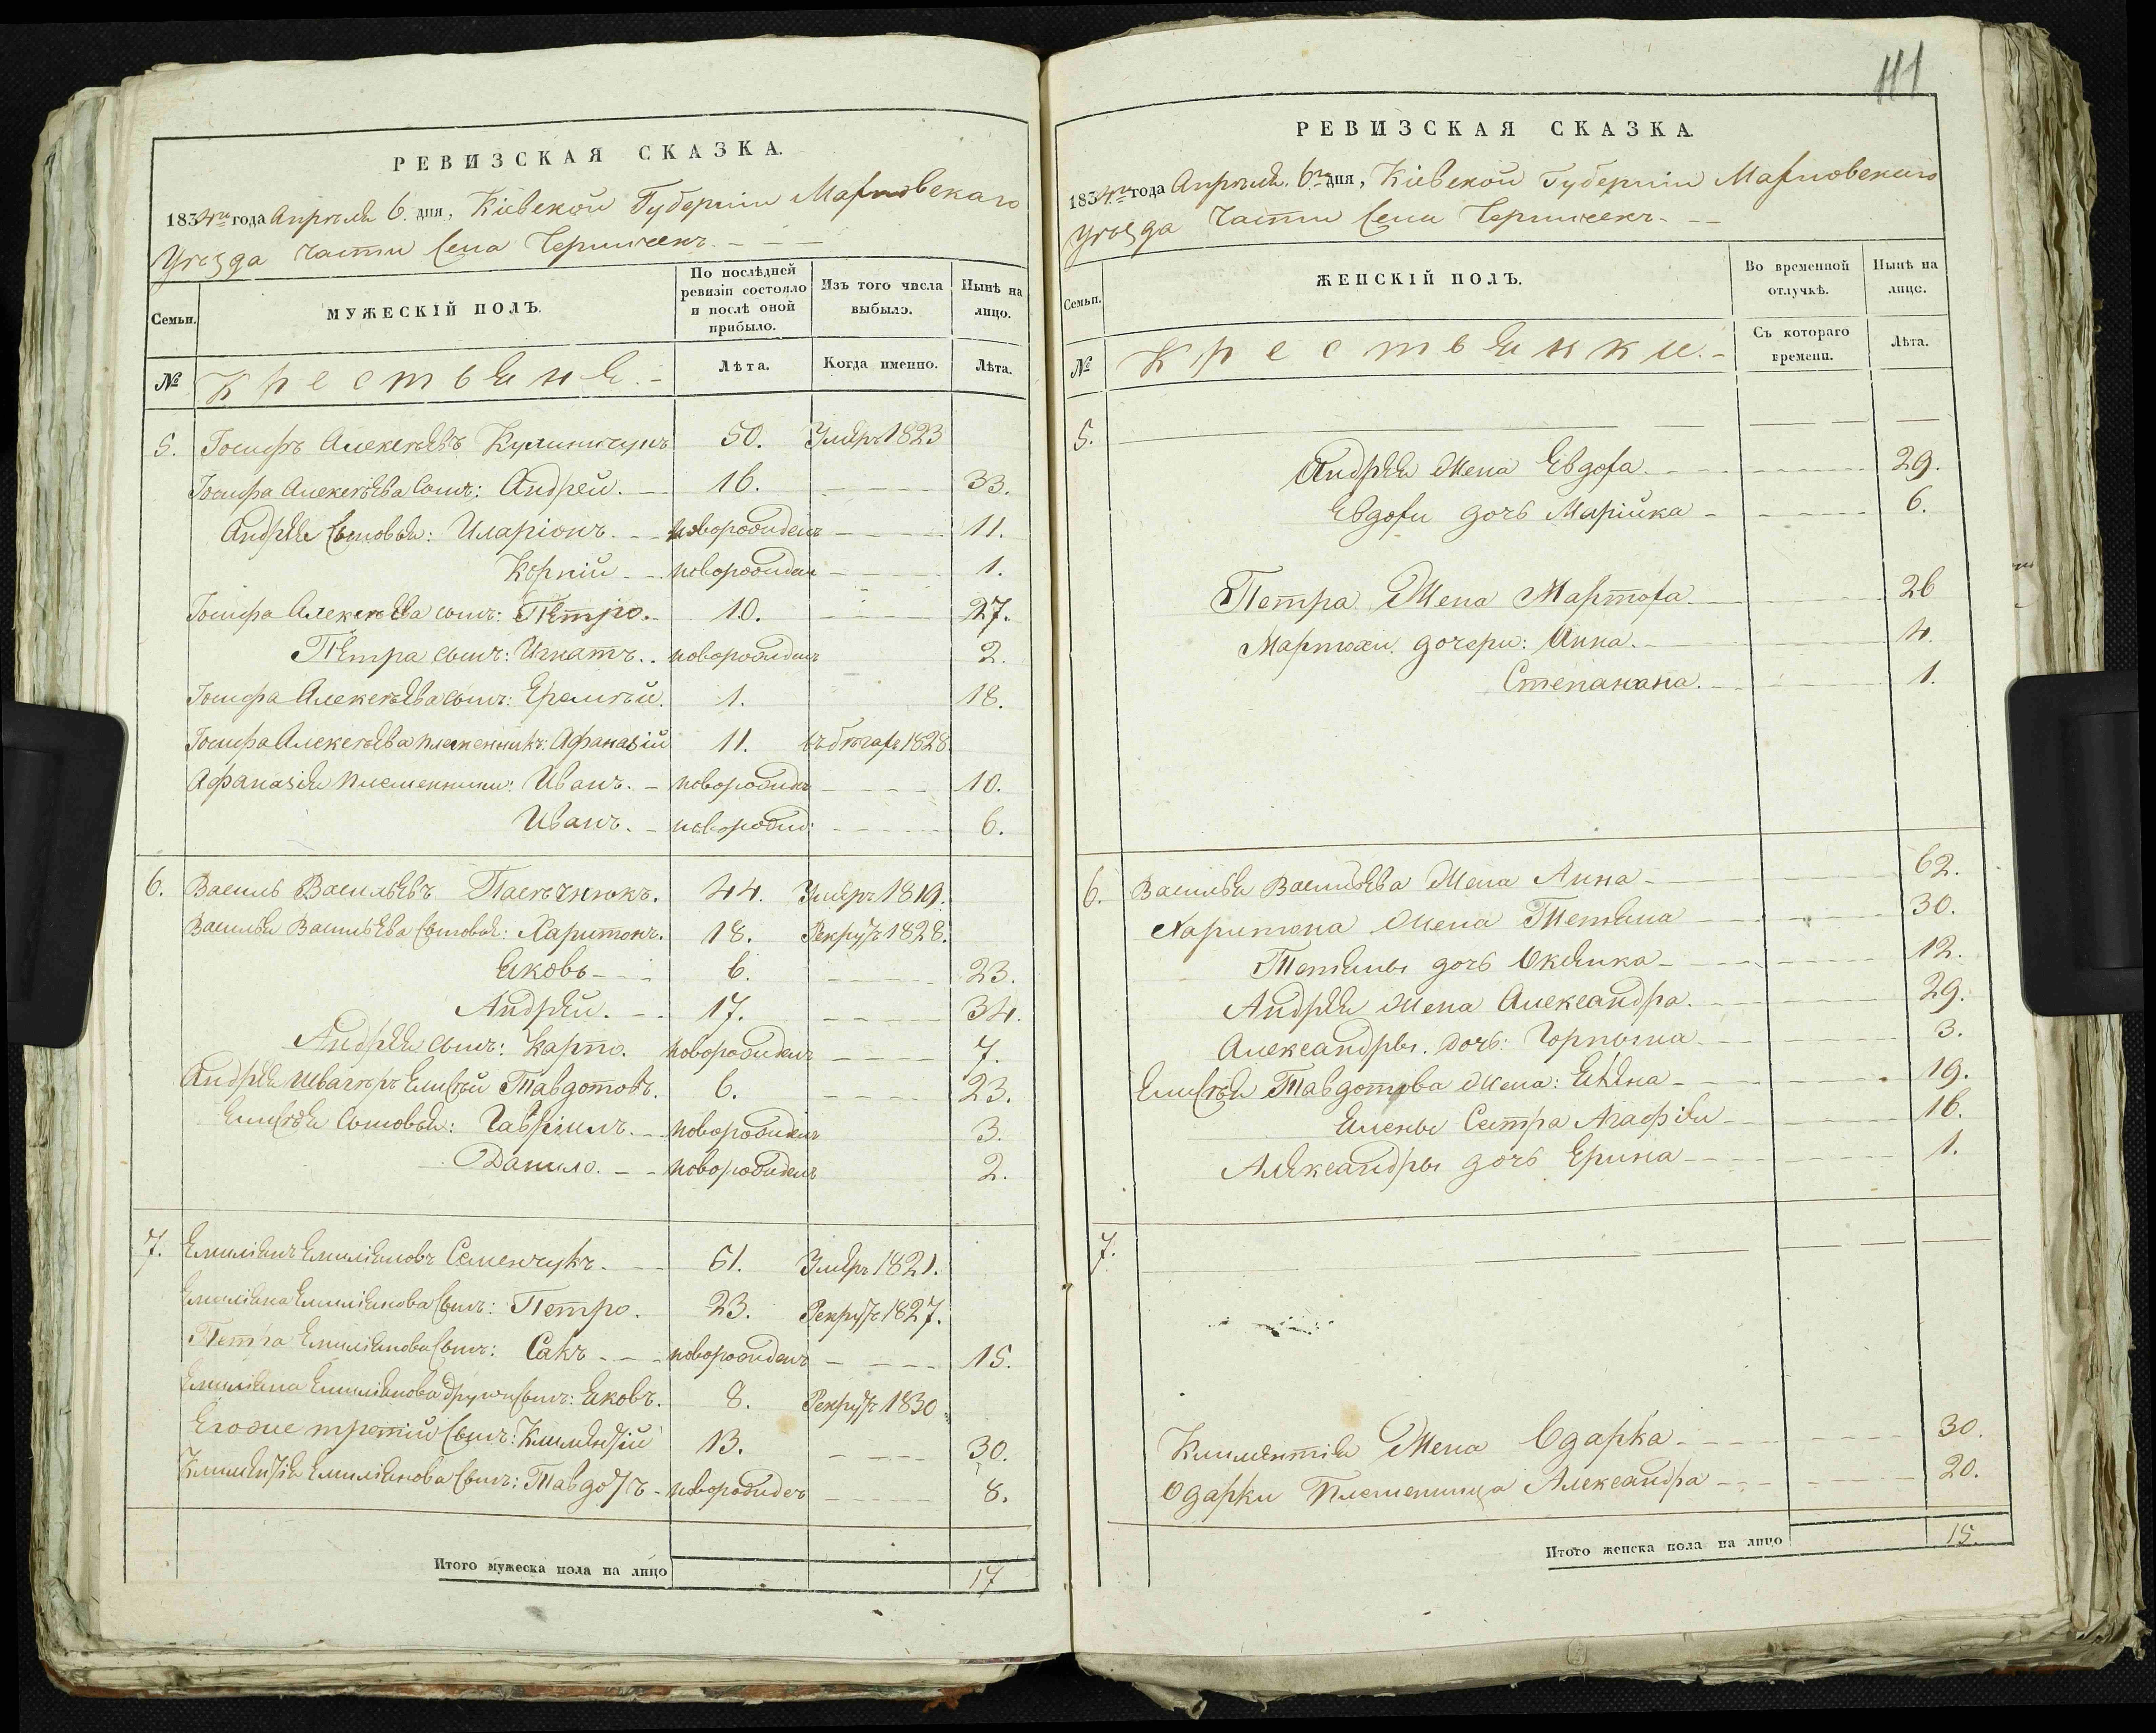 РЕВИЗСКАЯ СКАЗКА.
1834го года Апреля 6. дня, Кіевской Губерніи Махновскаго
Уезда части Села
Семьи.
МУЖЕСКІЙ ПОЛЪ.
По послѣдней ревизіи состояло и послѣ оной прибыло.
Изъ того числа выбыло.
Нынѣ на лицо.
№
Крестьяне.
Лѣта.
Когда именно.
Лѣта.
5. Іосифъ Алексѣевъ 50. Умеръ 1823
Іосифа Алексѣева сынъ: Андрей. 16. 33.
Андрея сыновья: Иларіонъ. новорожденъ 11.
Корній новорожден 1.
Іосифа Алексѣева сынъ: Петро. 10. 27.
Петра сынъ: Игнатъ. новорожденъ 2.
Іосифа Алексѣева сынъ: Еремѣй. 1. 18.
Іосифа Алексѣева племенникъ: Афанасій 11. въ бѣгахъ 1828.
Афанасія племенники: Иванъ. новорожденъ 10.
Иванъ. новорожд: 6.
6. Василь Васильевъ Пасѣчнюкъ. 44. Умеръ 1819.
Василья Васильева сыновья: Харитонъ. 18. Рекрутъ 1828.
Яковъ 6. 23.
Андрей. 17. 34.
Андрея сынъ: Карпо. новорожденъ 7.
Андрея швагеръ Елисѣй Павдотовъ. 6. 23.
Елисѣя сыновья: Гавріилъ. новорожденъ 3.
Данило. новорожденъ 2.
7. Емиліянъ Емиліяновъ Семенчукъ. 61. Умеръ 1821.
Емиліяна Емиліянова сынъ: Петро. 23. Рекрутъ 1827.
Петра Емиліянова сынъ: Сакъ новорожденъ 15.
Емиліяна Емиліянова другий сынъ: Яковъ. 8. Рекрутъ 1830
Егоже третій сынъ: Климентій 13. 30.
Климентія Емиліянова сынъ: Павдотъ новорожденъ 8.
Итого мужеска пола на лицо 17
111
РЕВИЗСКАЯ СКАЗКА.
1834го года Апреля 6го дня, Кіевской Губерніи Махновскаго
Уезда части Села
Семьи.
ЖЕНСКІЙ ПОЛЪ.
Во временной отлучкѣ.
Нынѣ на лице.
№
Крестьянки.
Съ котораго времени.
Лѣта.
5.
Андрея жена Евдоха. 29.
Евдохи дочь Марійка 6.
Петра жена Мартоха 26
Мартохи дочери: Анна. 4.
1.
6. Василья Васильева жена Анна 62.
Харитона жена Тетяна 30.
Тетяны дочь 12.
Андрея жена Александра. 29.
Александры. дочь: Горпына 3.
Елисѣя Павдотова жена: Елена 19.
Елены Сестра Агафія 16.
Александры дочь Ерина 1.
7.
Климентія жена Одарка 30.
Одарки племенница Александра 20.
Итого женска пола на лицо 15.